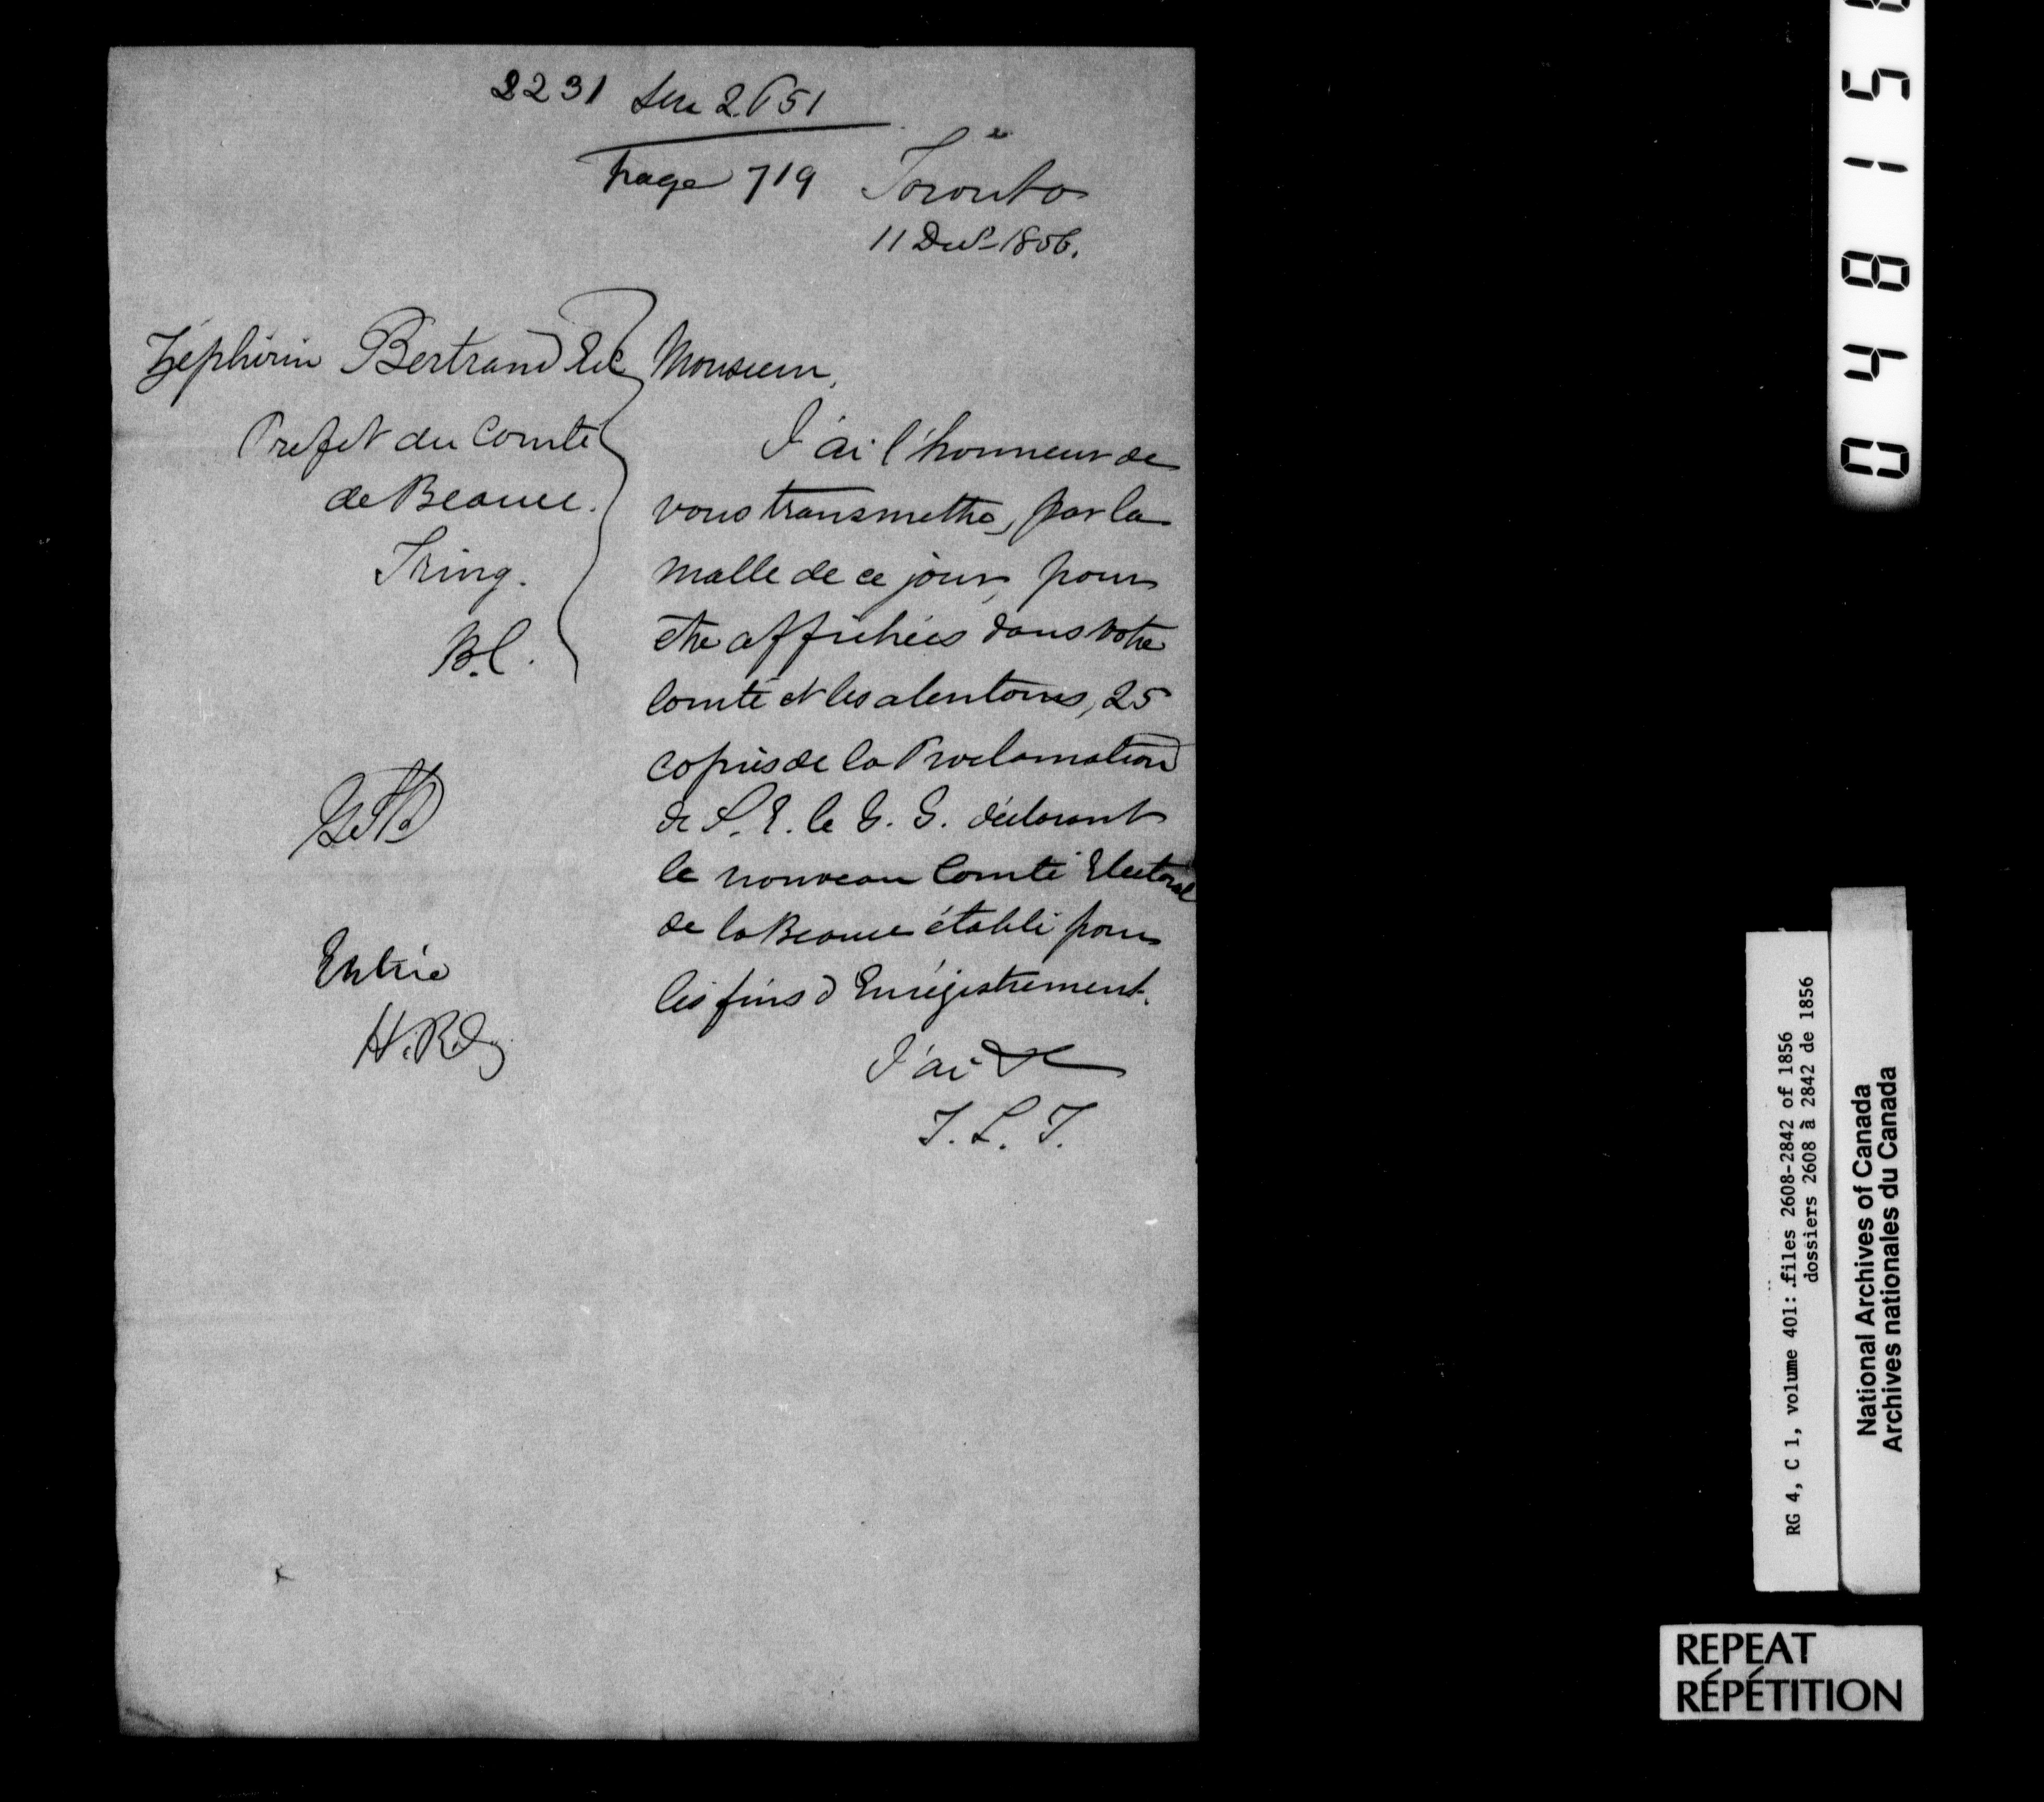 2231 See 2651
page 719
Toronto
11 Decr 1856.
Zéphirin Bertrand Ec
Préfet du Comté
de Beauce.
Tring.
B.C.
Monsieur,
J'ai l'honneur de
vous transmettre, par la
malle de ce jour, pour
être affichées dans votre
Comté et les alentours, 25
copies de la Proclamation
de S. E. le G. G. déclarant
le nouveau Comté Electoral
de la Beauce établi pour
les fins d'Enrégistrement.
J'ai &c
T. L. T.
Entrée
04815
RG 4, C 1, volume 401: files 2608-2842 of 1856
dossiers 2608 à 2842 de 1856
National Archives of Canada
Archives nationales du Canada
REPEAT
RÉPÉTITION